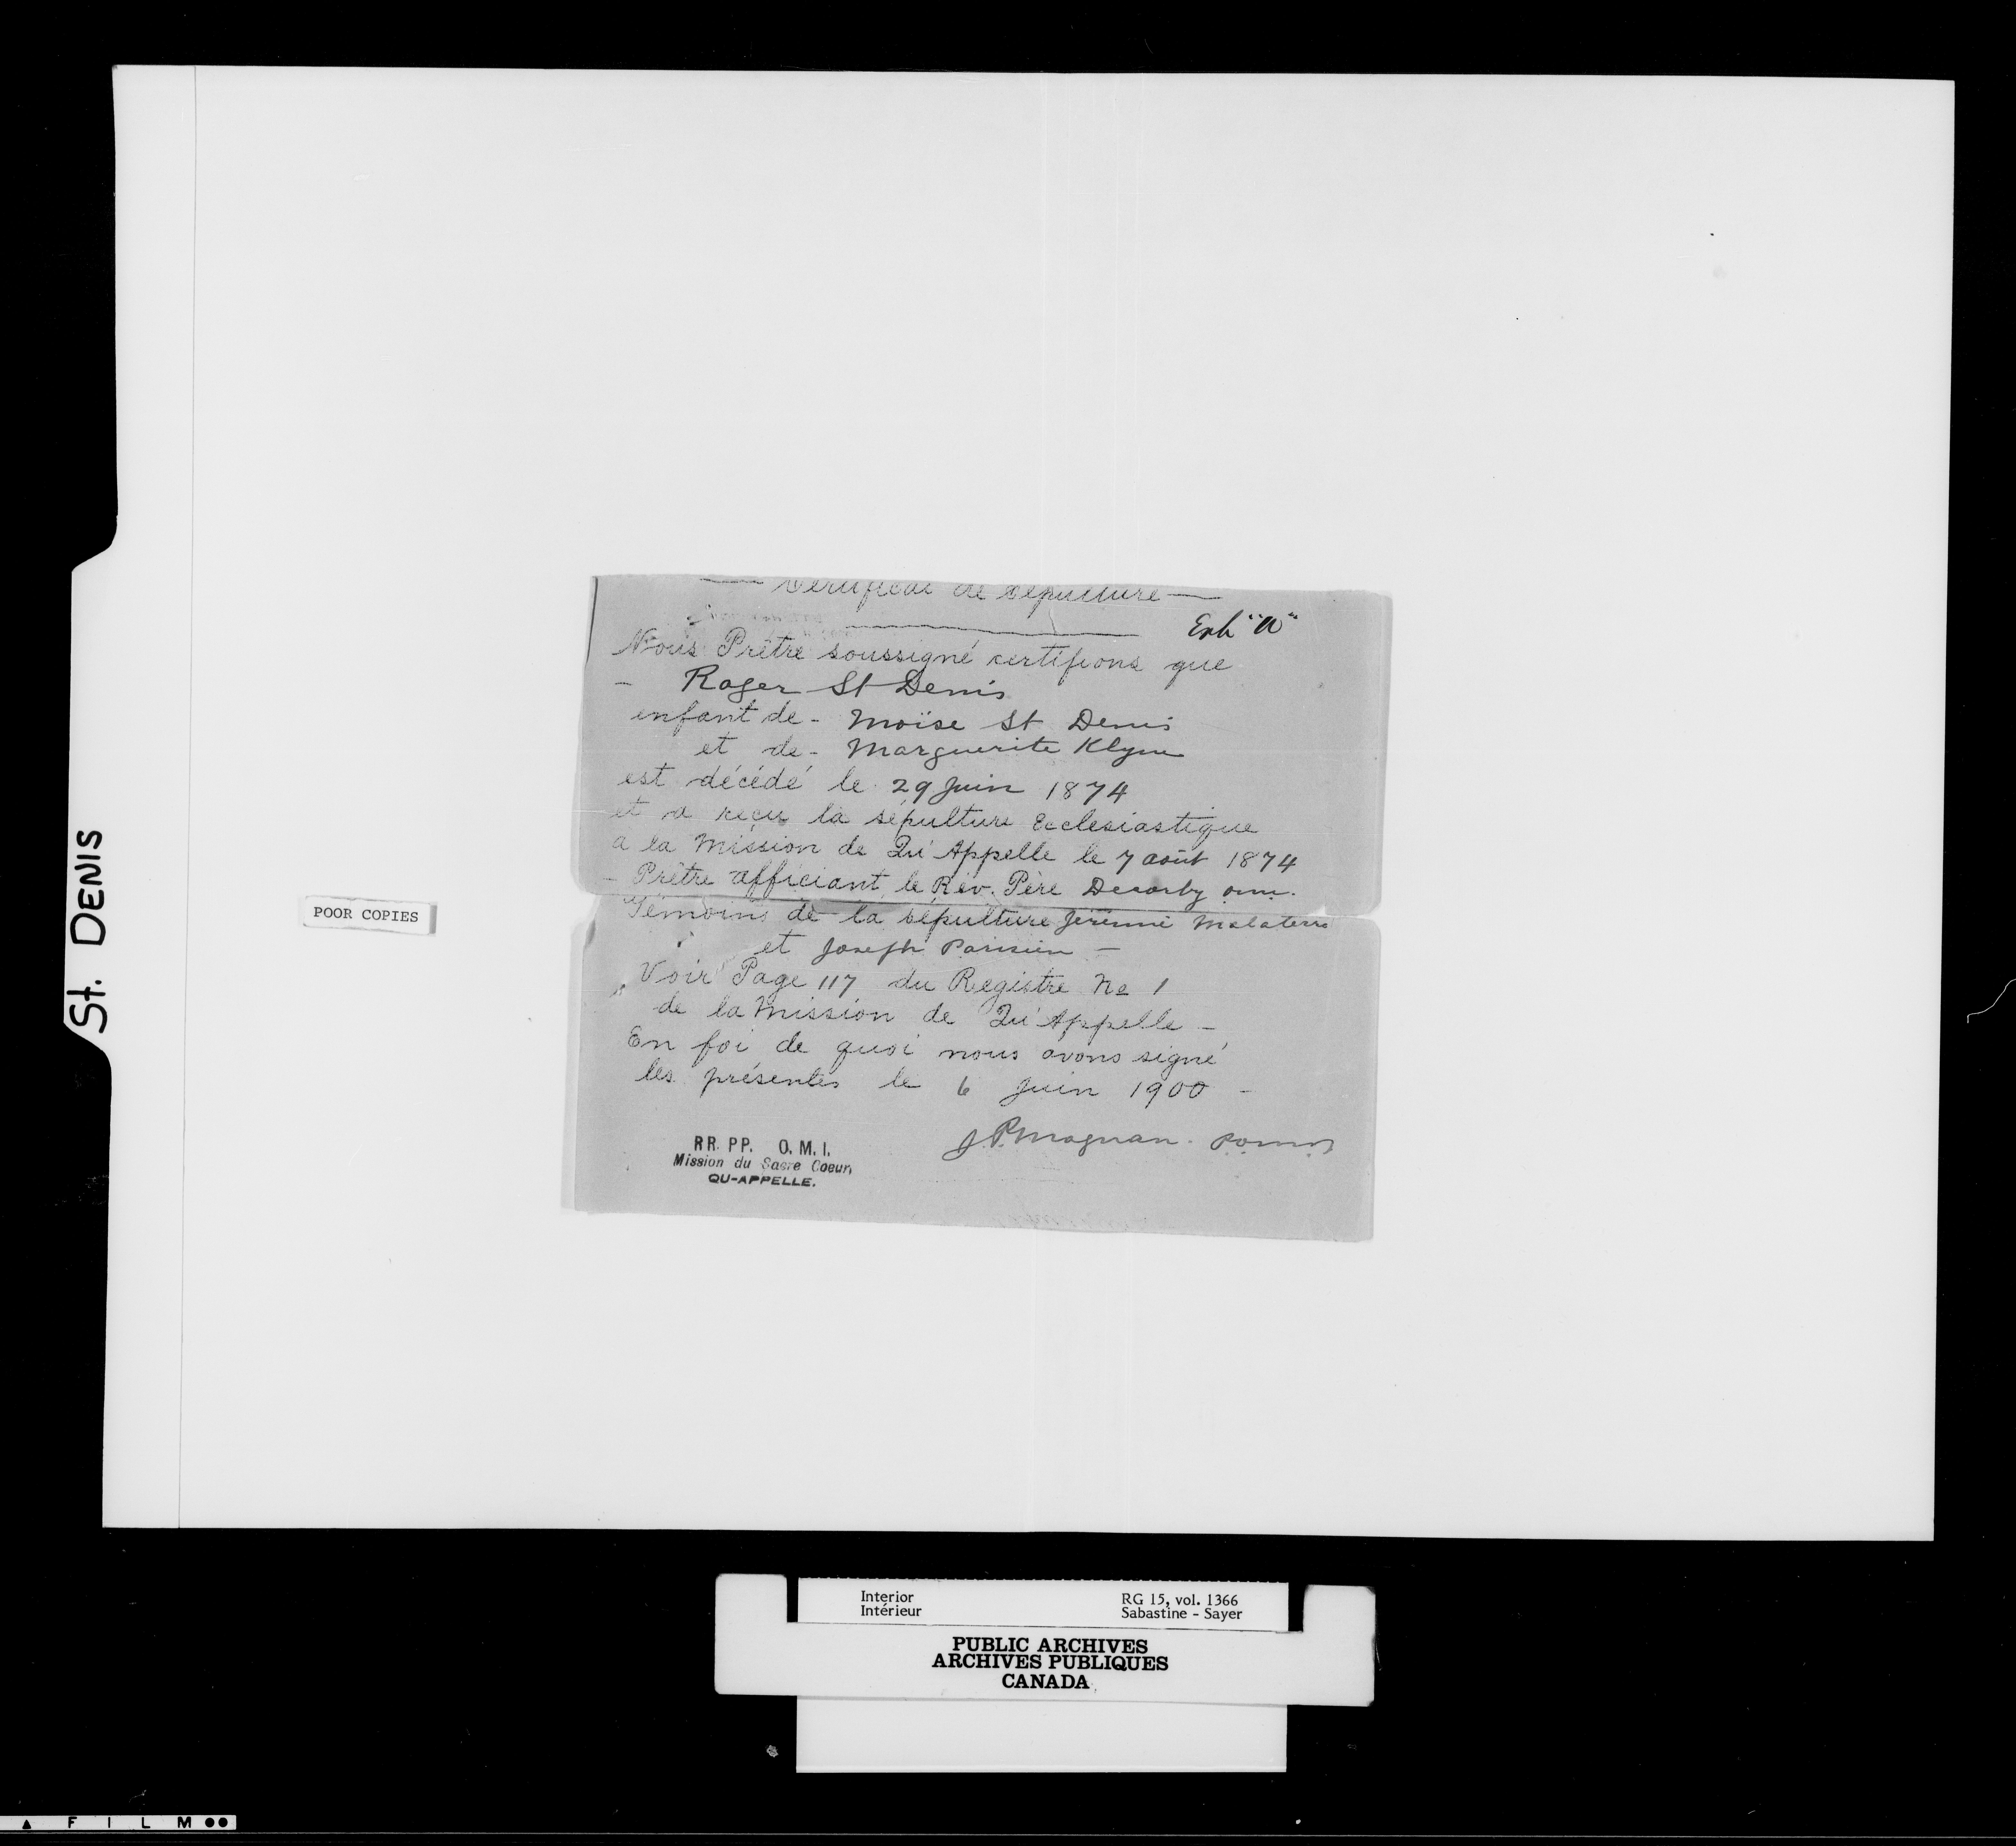 St. DENIS
POOR COPIES
Certificat de Sépulture
Exh "A"
Nous Prêtre soussigné certifions que
- Roger St Denis
enfant de - Moïse St Denis
et de - Marguerite Klyne
est décédé le 29 Juin 1874
et a reçu la sépulture Ecclesiastique
a la Mission de Qu'Appelle le 7 août 1874
- Prêtre officiant le Rév. Père Decorby o.m.i.
Témoins de la sépulture Jérémie Malaterre
et Joseph Parisien -
Voir Page 117 du Registre No 1
de la Mission de Qu'Appelle -
En foi de quoi nous avons signé
les présentes le 6 Juin 1900 -
J.P. Magnan
RR. PP. O.M.I.
Mission du Sacre Coeur,
QU-APPELLE.
Interior
Intérieur
RG 15, vol. 1366
Sabastine - Sayer
PUBLIC ARCHIVES
ARCHIVES PUBLIQUES
CANADA
FILM